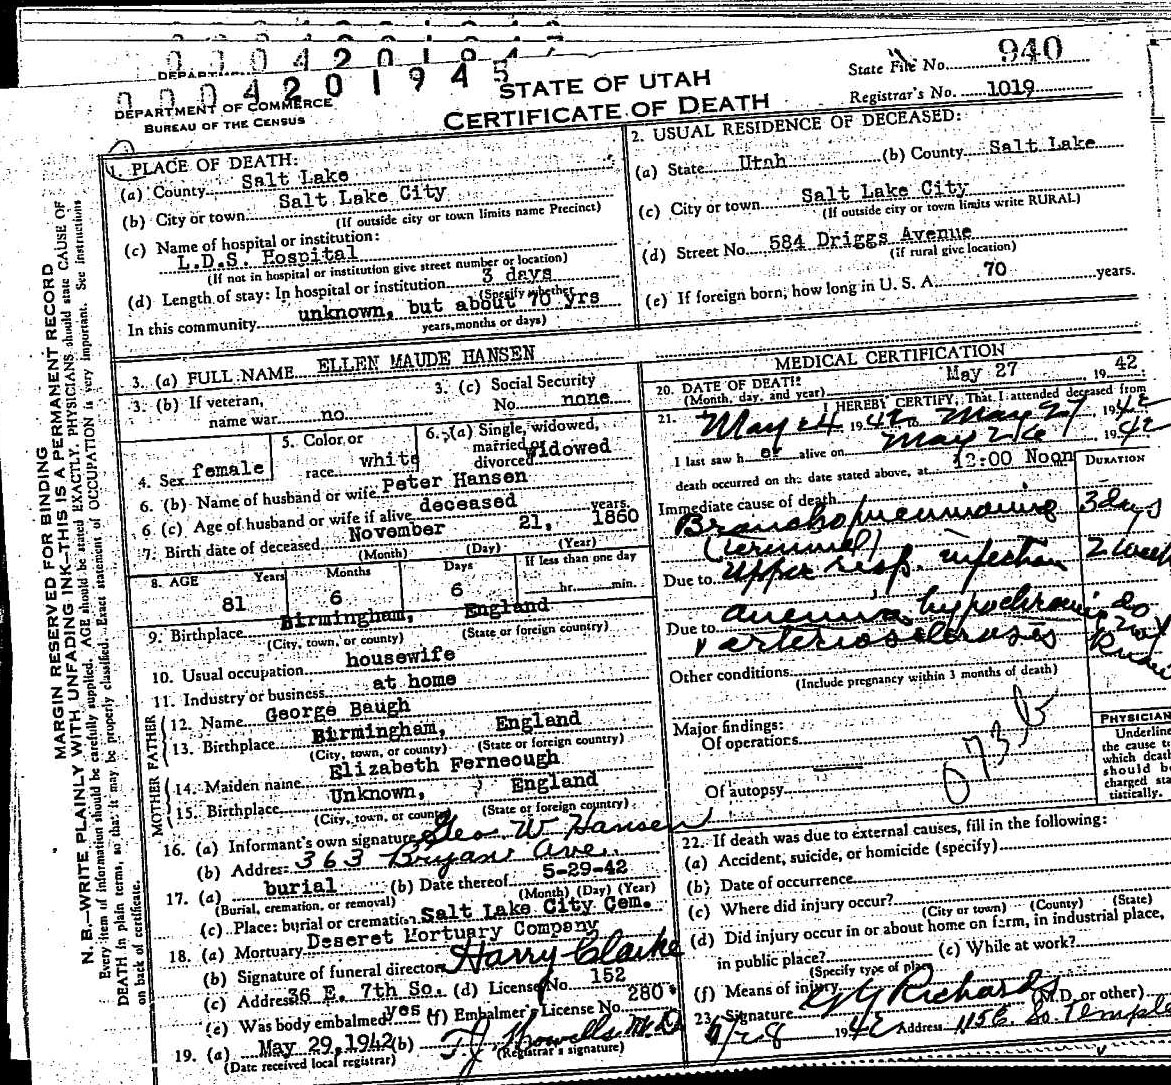 0004201945
DEPARTMENT OF COMMERCE
BUREAU OF THE CENSUS
STATE OF UTAH
CERTIFICATE OF DEATH
State File No. 940
Registrar's No. 1019
MARGIN RESERVED FOR BINDING
N. B.—WRITE PLAINLY WITH UNFADING INK—THIS IS A PERMANENT RECORD
Every item of information should be carefully supplied. AGE should be stated EXACTLY. PHYSICIANS should state CAUSE OF
DEATH in plain terms, so that it may be properly classified. Exact statement of OCCUPATION is very important. See instructions
on back of certificate.
1. PLACE OF DEATH:
(a) County Salt Lake
(b) City or town Salt Lake City
(If outside city or town limits name Precinct)
(c) Name of hospital or institution:
L.D.S. Hospital
(If not in hospital or institution give street number or location)
(d) Length of stay: In hospital or institution 3 days
(Specify whether
In this community unknown, but about 70 yrs
years, months or days)
2. USUAL RESIDENCE OF DECEASED:
(a) State Utah (b) County Salt Lake
(c) City or town Salt Lake City
(If outside city or town limits write RURAL)
(d) Street No. 584 Driggs Avenue
(if rural give location)
(e) If foreign born, how long in U. S. A. 70 years.
3. (a) FULL NAME ELLEN MAUDE HANSEN
3. (b) If veteran, name war no
3. (c) Social Security No. none
4. Sex female
5. Color or race white
6. (a) Single, widowed, married or divorced Widowed
6. (b) Name of husband or wife Peter Hansen
6 (c) Age of husband or wife if alive deceased years.
7. Birth date of deceased November 21, 1860
(Month) (Day) (Year)
8. AGE Years Months Days If less than one day
81 6 6 hr. min.
9. Birthplace Birmingham, England
(City, town, or county) (State or foreign country)
10. Usual occupation housewife
11. Industry or business at home
FATHER
12. Name George Baugh
13. Birthplace Birmingham, England
(City, town, or county) (State or foreign country)
MOTHER
14. Maiden name Elizabeth Ferneough
15. Birthplace Unknown, England
(City, town, or county) (State or foreign country)
16. (a) Informant's own signature Geo W Hansen
(b) Address 363 Bryan Ave.
17. (a) burial (b) Date thereof 5-29-42
(Burial, cremation, or removal) (Month) (Day) (Year)
(c) Place: burial or cremation Salt Lake City Cem.
18. (a) Mortuary Deseret Mortuary Company
(b) Signature of funeral director Harry Clarke
(c) Address 36 E. 7th So. (d) License No. 152
(e) Was body embalmed yes (f) Embalmer's License No. 280
19. (a) May 29, 1942 (b) T.J. Howells M.D.
(Date received local registrar) (Registrar's signature)
MEDICAL CERTIFICATION
20. DATE OF DEATH: May 27, 1942
(Month, day, and year)
21. I HEREBY CERTIFY, That I attended deceased from
May 24 1942 to May 27 1942
I last saw her alive on May 26, 1942
death occurred on the date stated above, at 12:00 Noon
DURATION
Immediate cause of death
Bronchopneumonia 3 days
(terminal)
Due to upper resp. infection 2 week
Due to anemia, hypochromic
arteriosclerosis
Other conditions
(Include pregnancy within 3 months of death)
Major findings:
Of operations
Of autopsy
PHYSICIAN
Underline
the cause t
which death
should b
charged sta
tistically.
22. If death was due to external causes, fill in the following:
(a) Accident, suicide, or homicide (specify)
(b) Date of occurrence
(c) Where did injury occur?
(City or town) (County) (State)
(d) Did injury occur in or about home on farm, in industrial place,
in public place? (e) While at work?
(Specify type of place)
(f) Means of injury
23. Signature G G Richards (M.D. or other)
1942 Address 115 E. So. Temple